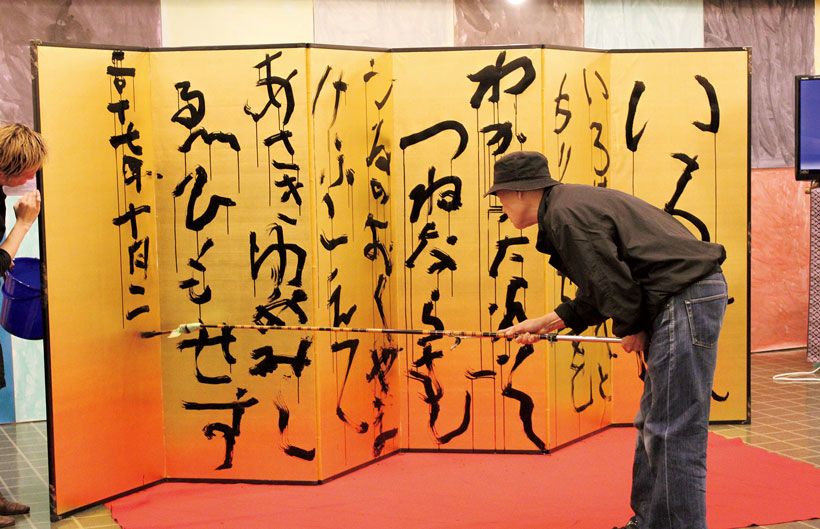 いろ
いろは
ちり
わかよたれそ
つねならむ
うゐのおくやま
けふこえて
あさきゆめみし
ゑひもせす
二十七年十月二